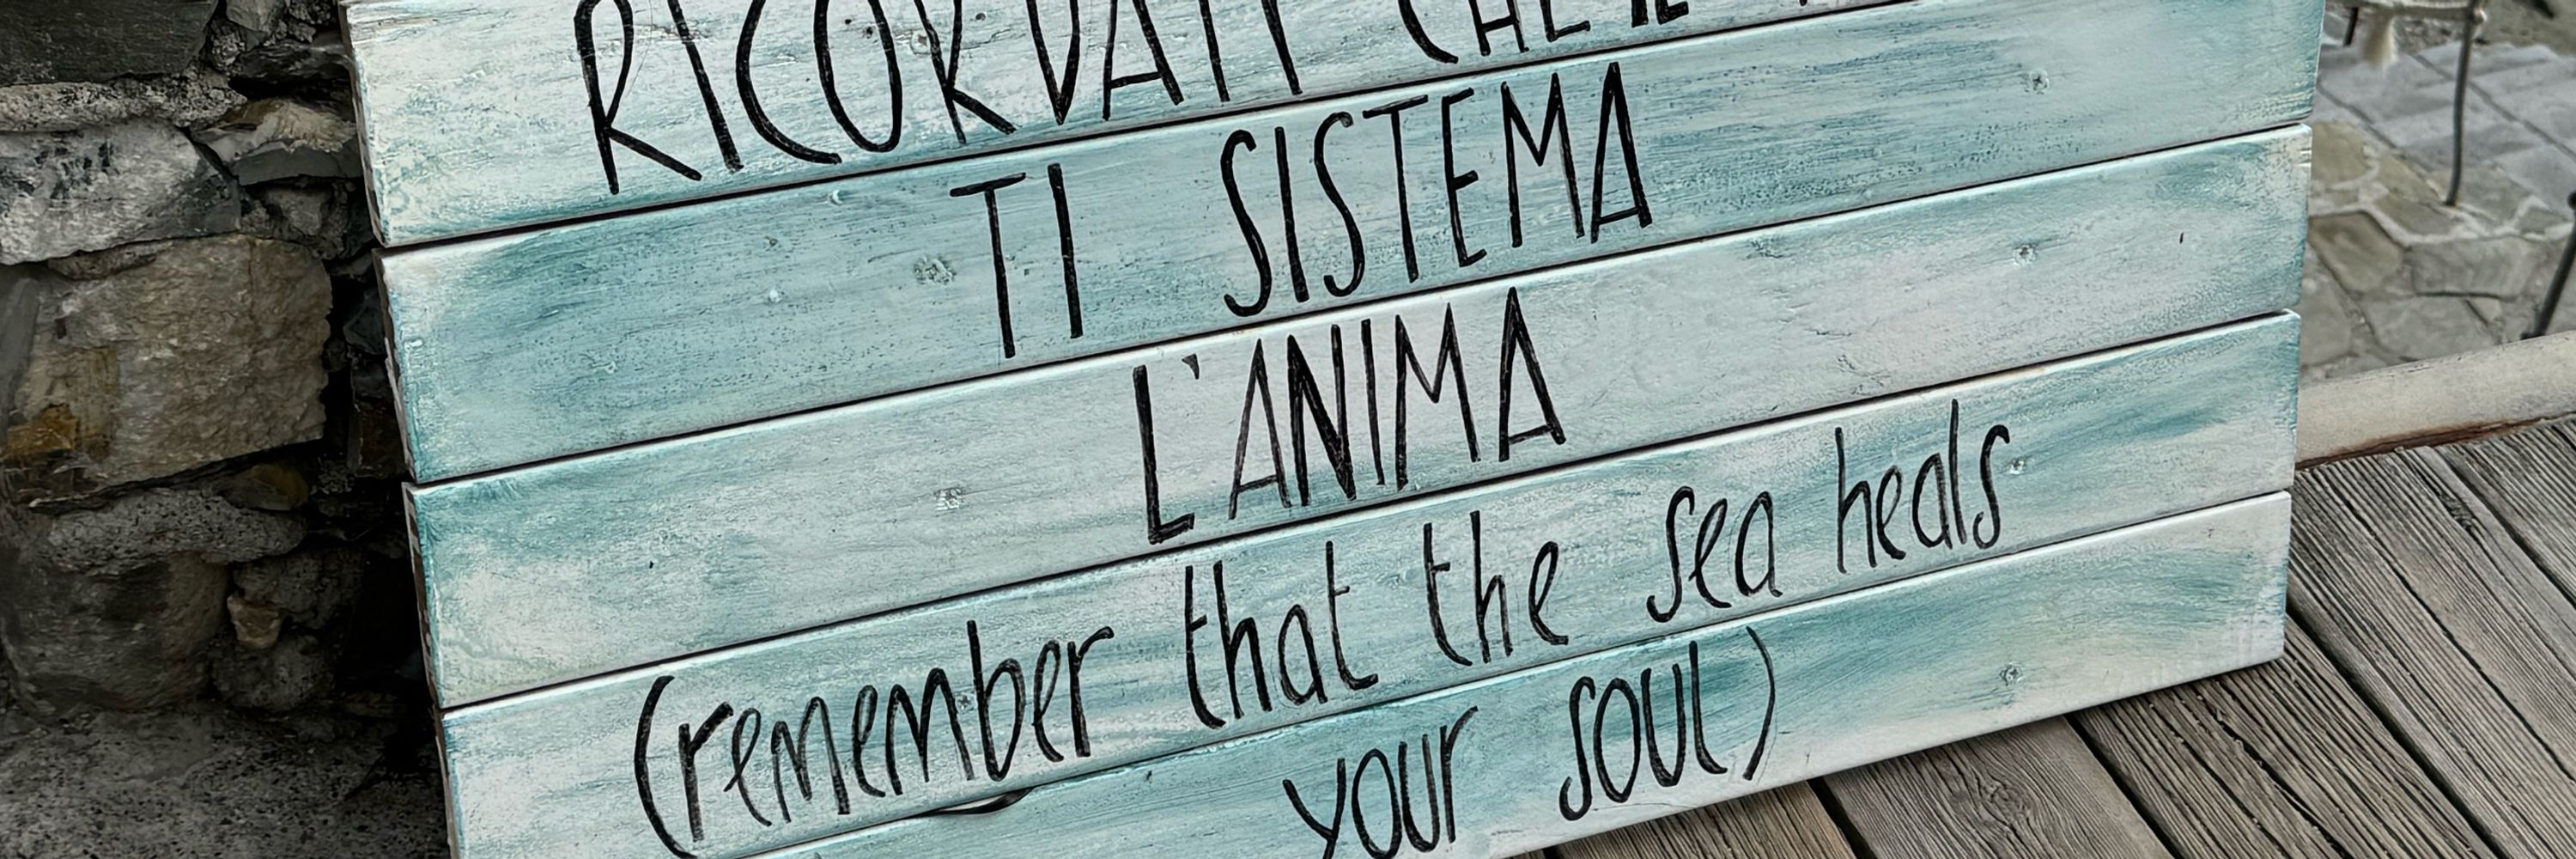 RICORDATI CHE IL
TI SISTEMA
L'ANIMA
(remember that the sea heals
your soul)